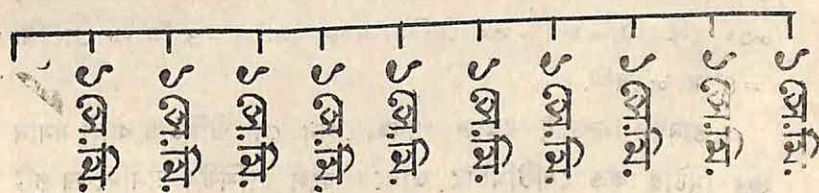 ১ সে.মি.
১ সে.মি.
১ সে.মি.
১ সে.মি.
১ সে.মি.
১ সে.মি.
১ সে.মি.
১ সে.মি.
১ সে.মি.
১ সে.মি.